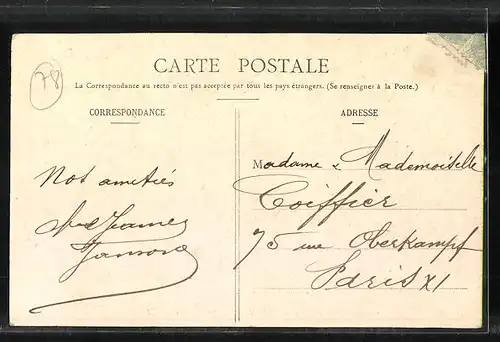 78
CARTE POSTALE
La Correspondance au recto n'est pas acceptée par tous les pays étrangers. (Se renseigner à la Poste.)
CORRESPONDANCE
ADRESSE
Nos amitiés
Madame & Mademoiselle
Coiffier
75 rue Oberkampf
Paris XI